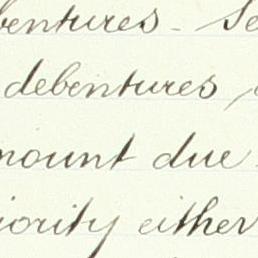 bentures - Se
debentures,
mount due
iority either